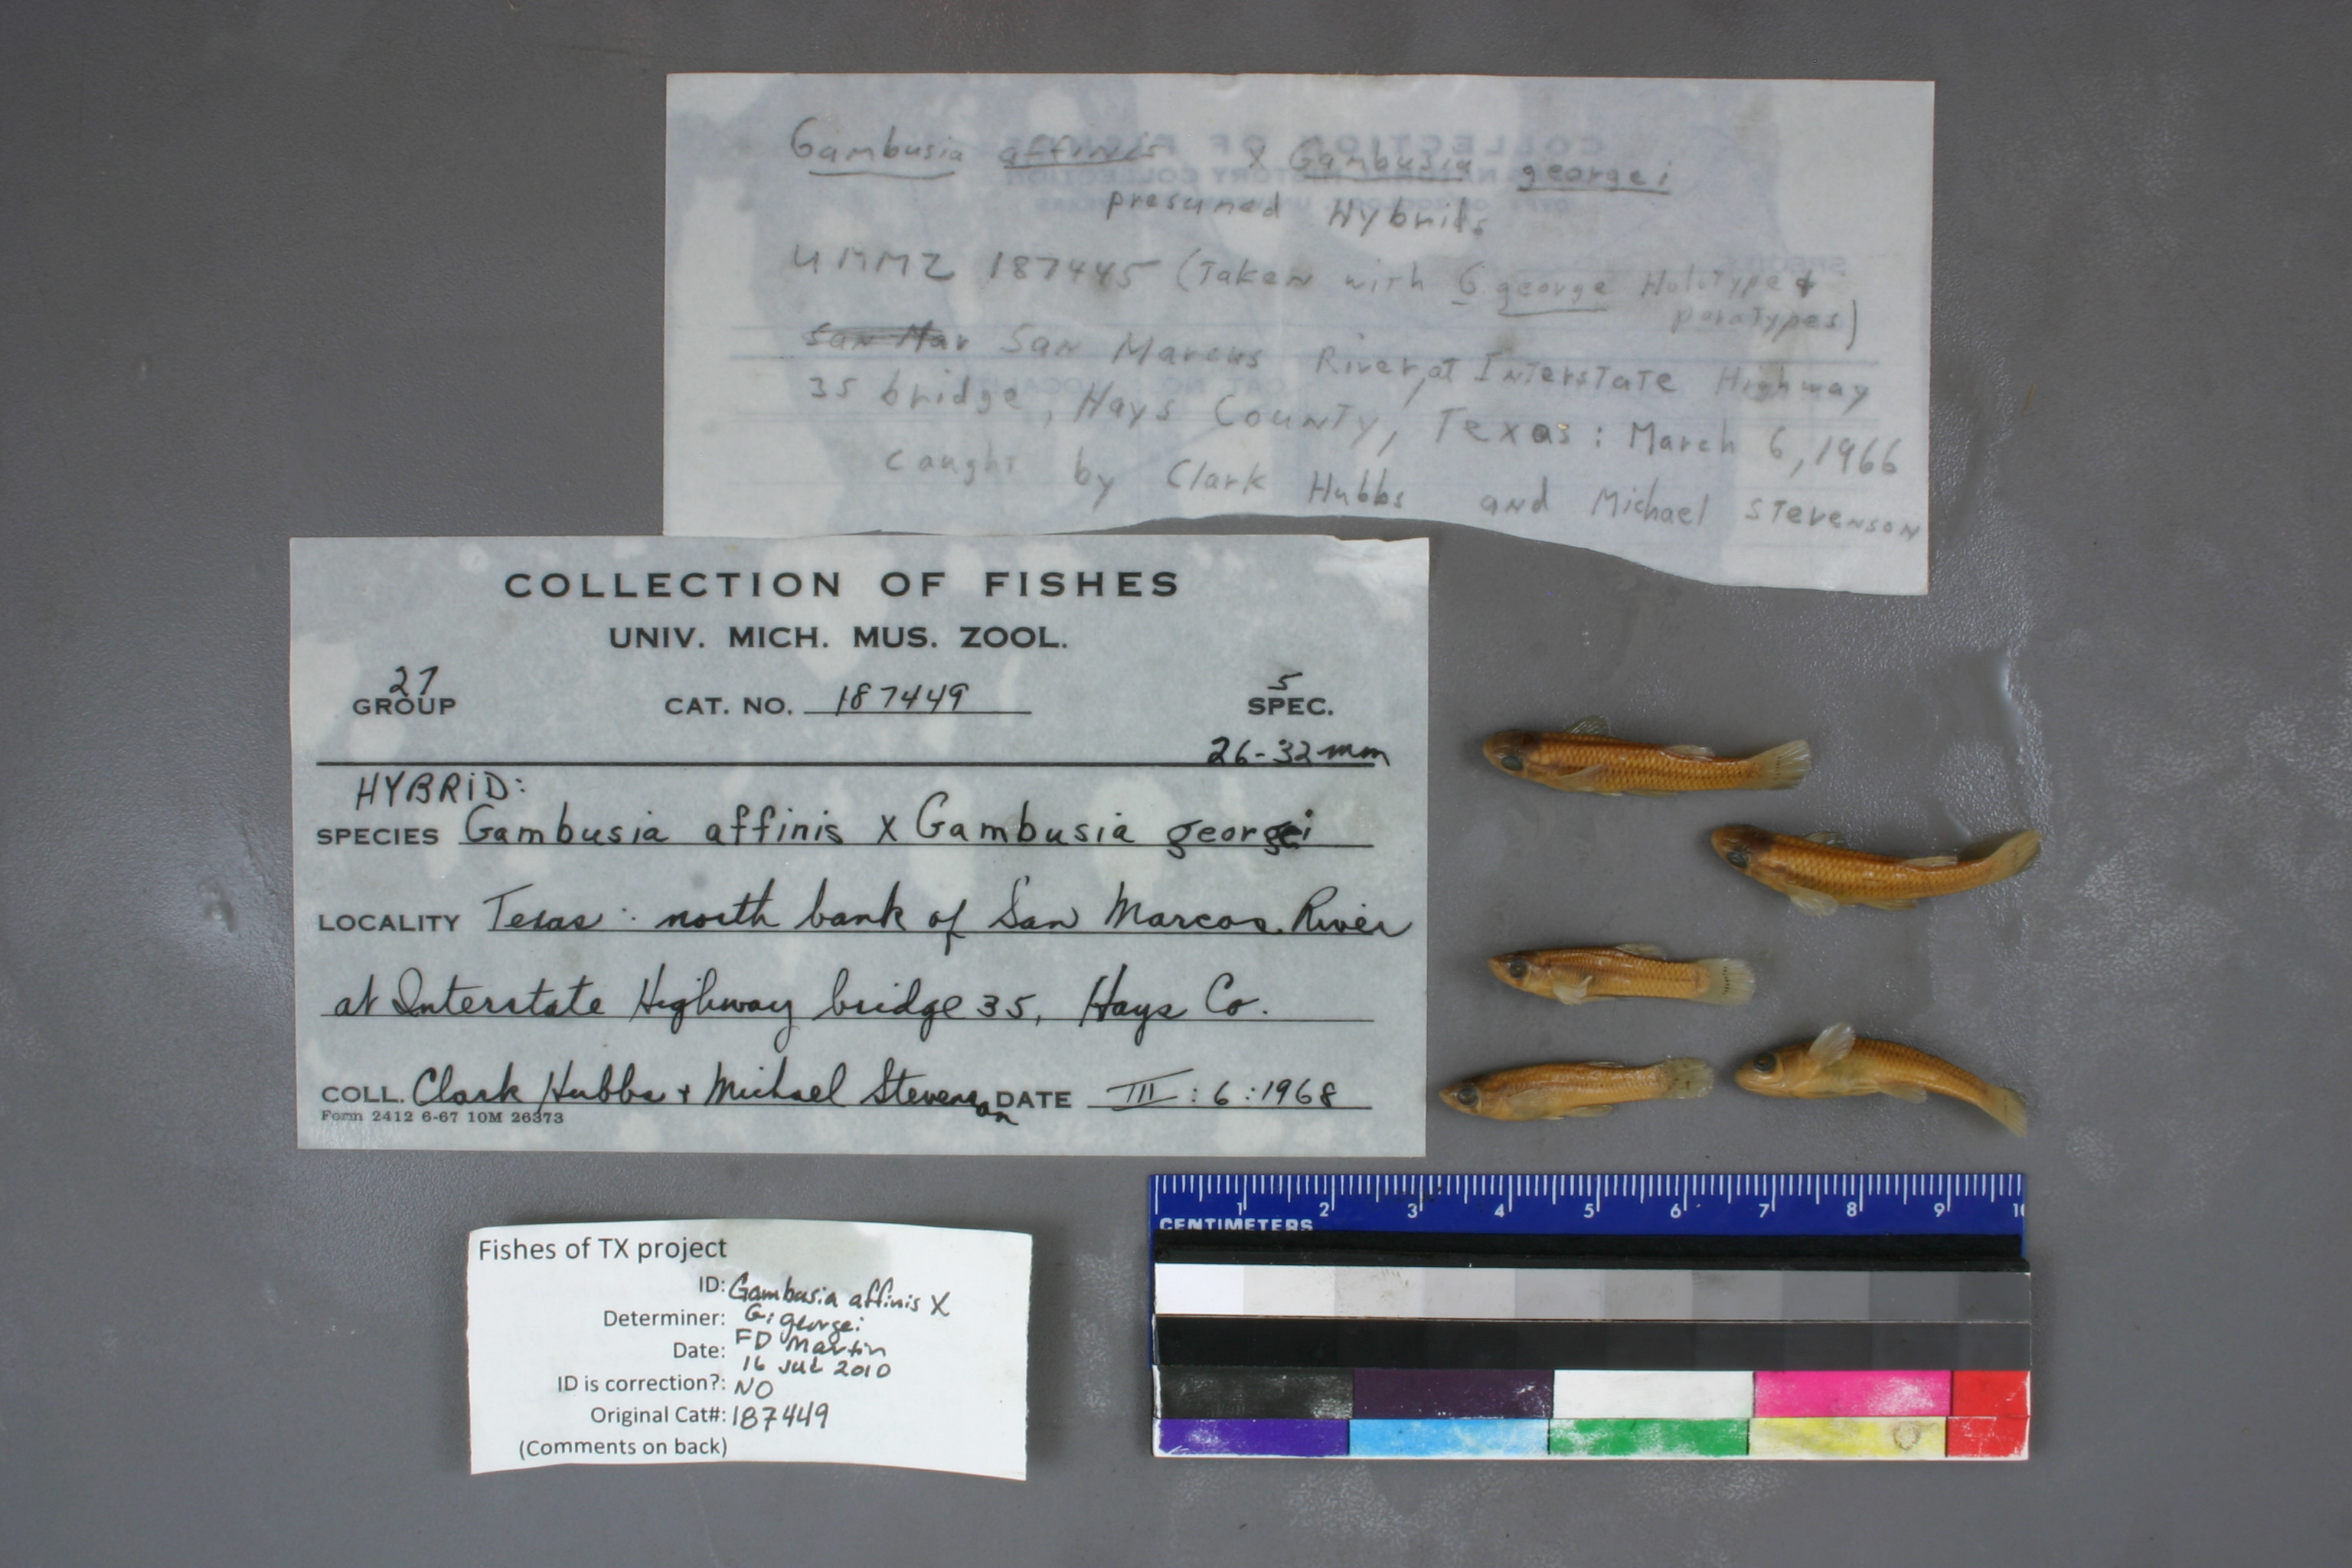 Gambusia affinis x Gambusia georgei
presumed Hybrids
UMMZ 187445 (Taken with G. george Holotype &
paratypes)
San Mar San Marcus River, at Interstate Highway
35 bridge, Hays County, Texas: March 6, 1966
caught by Clark Hubbs and Michael Stevenson
COLLECTION OF FISHES
UNIV. MICH. MUS. ZOOL.
27 5
GROUP CAT. NO. 187449 SPEC.
26-32mm
HYBRID:
SPECIES Gambusia affinis X Gambusia georgei
LOCALITY Texas: north bank of San Marcos River
at Interstate Highway bridge 35, Hays Co.
COLL. Clark Hubbs + Michael Stevenson DATE III:6:1968
Form 2412 6-67 10M 26373
Fishes of TX project
ID: Gambusia affinis X
G. georgei
Determiner: FD Martin
Date: 16 Jul 2010
ID is correction?: NO
Original Cat#: 187449
(Comments on back)
1 2 3 4 5 6 7 8 9 10
CENTIMETERS